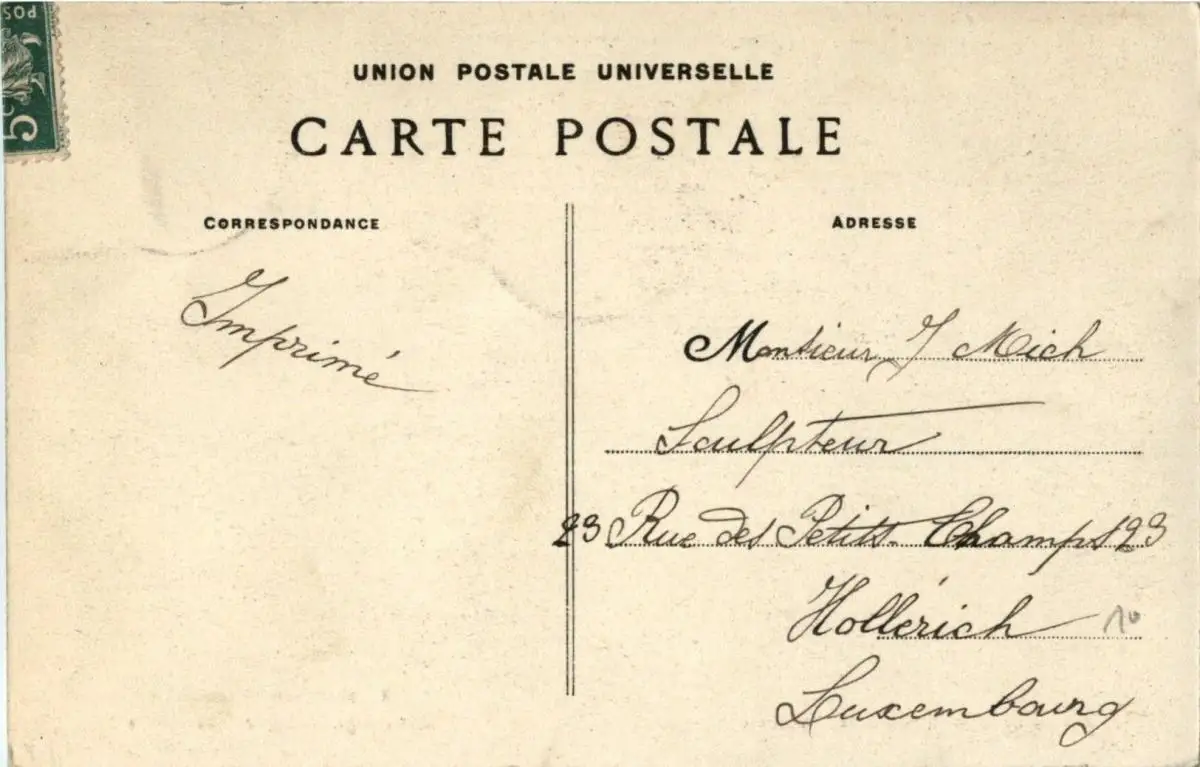 POS
5c
UNION POSTALE UNIVERSELLE
CARTE POSTALE
CORRESPONDANCE
ADRESSE
Imprimé
Monsieur J Mich
Sculpteur
23 Rue des Petits-Champs 23
Hollérich
10
Luxembourg